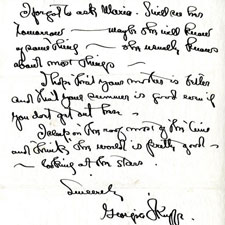 I forgot to ask Maria. I will see her
tomorrow — maybe she will know
of something — she usually knows
about most things —
I hope that your mother is better
and that your summer is good even if
you don't get out here.
I sleep on the roof most of the time
and think the world is pretty good
— looking at the stars.
Sincerely
Georgia O'Keeffe